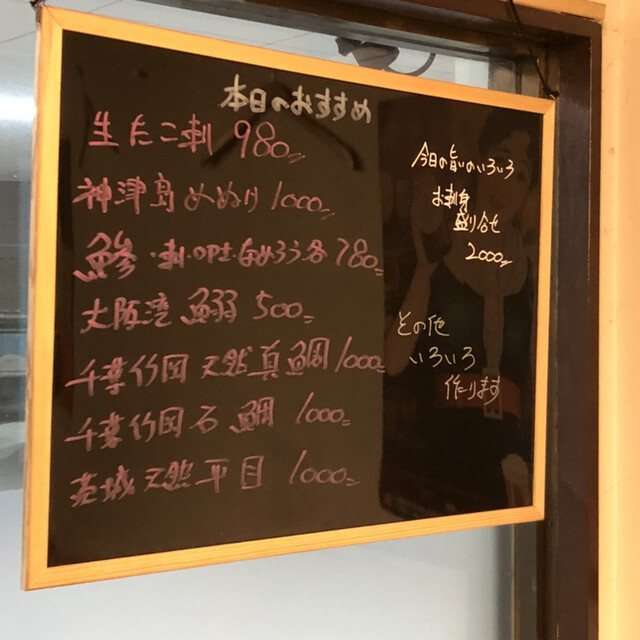 本日のおすすめ
生たこ刺 980
神津島めぬけ 1000
鯵・刺・なめろう各 780
大阪湾 鰯 500
千葉竹岡 天然真鯛 1000
千葉竹岡 石鯛 1000
茨城 天然 平目 1000
今日の旨いのいろいろ
お刺身
盛り合せ
2000
その他
いろいろ
作ります